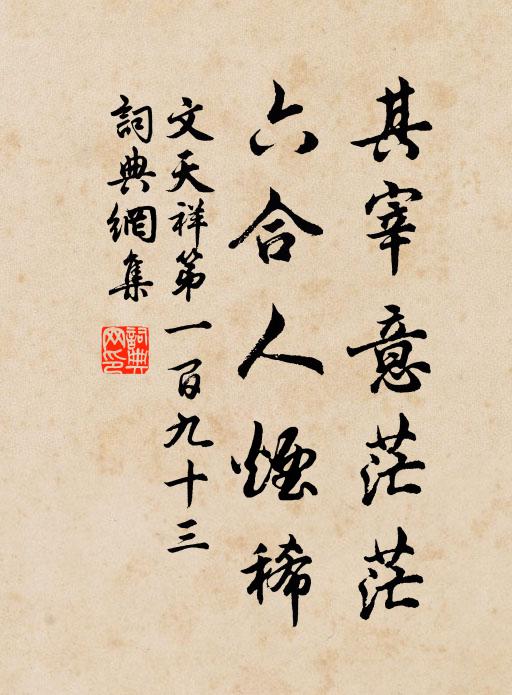 其宰意茫茫
六合人煙稀
文天祥第一百九十三
詞典網集
詞典网印